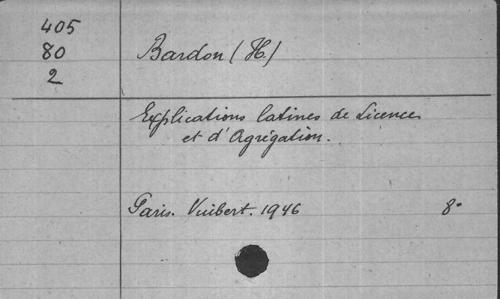 405
80
2
Bardon (H.)
Explications latines de Licences
et d'Agrégation.
Paris. Vuibert. 1946 8°